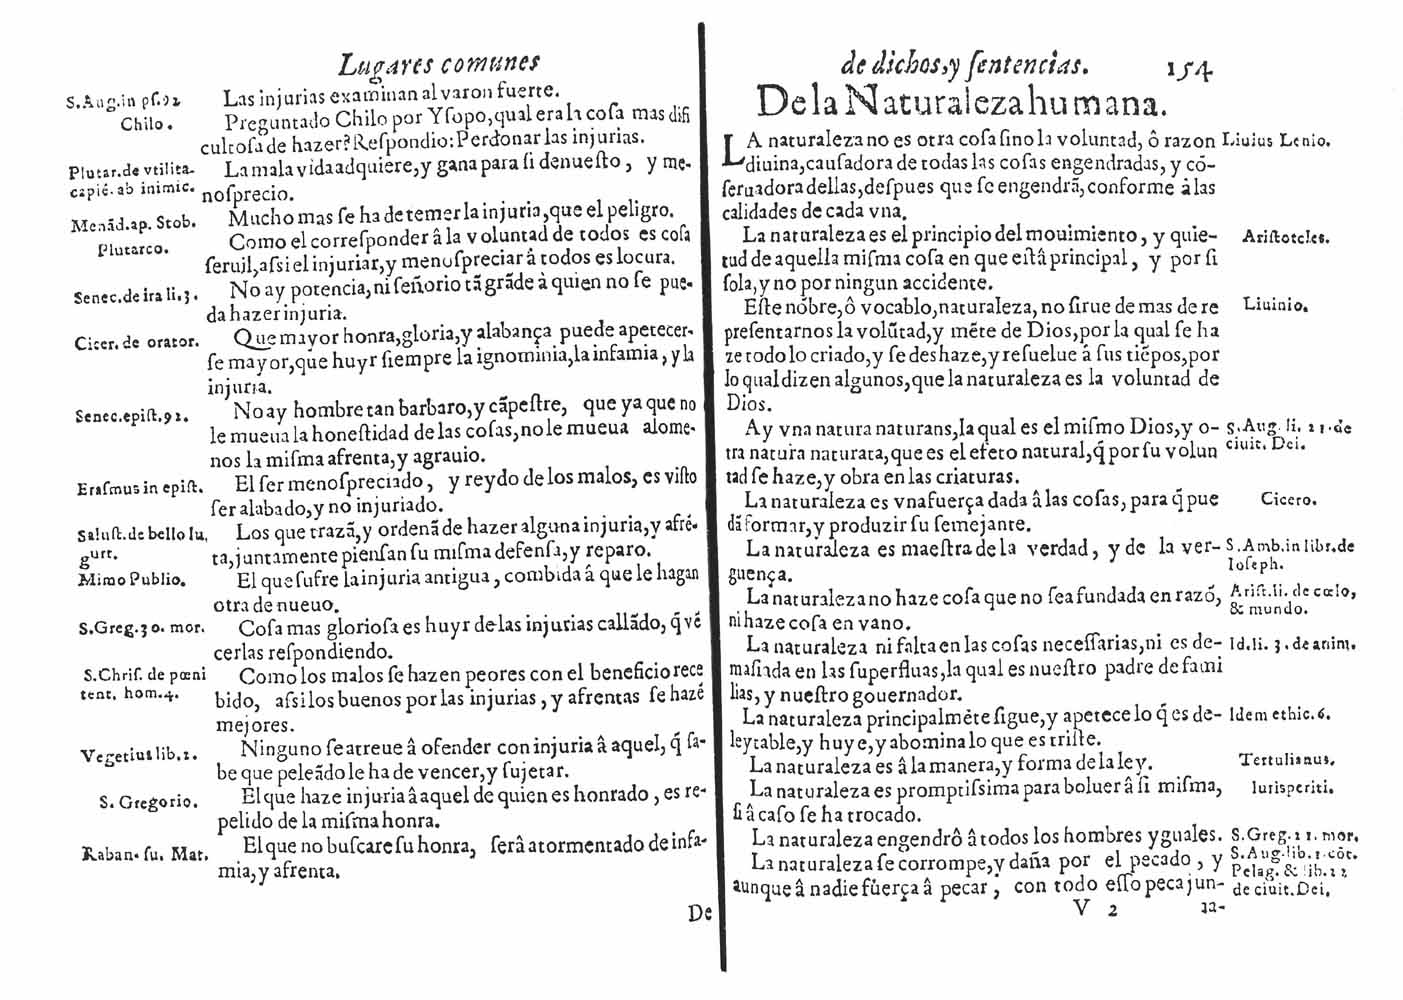 Lugares comunes
S. Aug. in pſ.92 Las injurias examinan al varon fuerte.
Chilo. Preguntado Chilo por Yſopo, qual era la coſa mas difi
cultoſa de hazer? Reſpondio: Perdonar las injurias.
Plutar. de vtilita. La mala vida adquiere, y gana para ſi denueſto, y me-
capiē. ab inimic. noſprecio.
Menād. ap. Stob. Mucho mas ſe ha de temer la injuria, que el peligro.
Plutarco. Como el correſponder â la voluntad de todos es coſa
ſeruil, aſsi el injuriar, y menoſpreciar â todos es locura.
Senec. de ira li. 3. No ay potencia, ni ſeñorio tā grāde à quien no ſe pue-
da hazer injuria.
Cicer. de orator. Que mayor honra, gloria, y alabança puede apetecer-
ſe mayor, que huyr ſiempre la ignominia, la infamia, y la
injuria.
Senec. epiſt. 92. No ay hombre tan barbaro, y cāpeſtre, que ya que no
le mueua la honeſtidad de las coſas, no le mueua alome-
nos la miſma afrenta, y agrauio.
Eraſmus in epiſt. El ſer menoſpreciado, y reydo de los malos, es viſto
ſer alabado, y no injuriado.
Saluſt. de bello Iu, Los que trazā, y ordenā de hazer alguna injuria, y afrē-
gurt. ta, juntamente pienſan ſu miſma defenſa, y reparo.
Mimo Publio. El que ſufre la injuria antigua, combida â que le hagan
otra de nueuo.
S. Greg. 30. mor. Coſa mas glorioſa es huyr de las injurias callādo, q̄ vē
cerlas reſpondiendo.
S. Chriſ. de pœni Como los malos ſe hazen peores con el beneficio rece
tent. hom. 4. bido, aſsi los buenos por las injurias, y afrentas ſe hazē
mejores.
Vegetius lib. 1. Ninguno ſe atreue â ofender con injuria â aquel, q̄ ſa-
be que peleādo le ha de vencer, y ſujetar.
S. Gregorio. El que haze injuria â aquel de quien es honrado, es re-
pelido de la miſma honra.
Raban. ſu. Mat. El que no buſcare ſu honra, ſerâ atormentado de infa-
mia, y afrenta.
De
de dichos, y ſentencias. 154
De la Naturaleza humana.
LA naturaleza no es otra coſa ſino la voluntad, ô razon Liuius Lenio.
diuina, cauſadora de todas las coſas engendradas, y cō-
ſeruadora dellas, deſpues que ſe engendrā, conforme â las
calidades de cada vna.
La naturaleza es el principio del mouimiento, y quie- Ariſtoteles.
tud de aquella miſma coſa en que eſtâ principal, y por ſi
ſola, y no por ningun accidente.
Eſte nōbre, ô vocablo, naturaleza, no ſirue de mas de re Liuinio.
preſentarnos la volūtad, y mēte de Dios, por la qual ſe ha
ze todo lo criado, y ſe deshaze, y reſuelue â ſus tiēpos, por
lo qual dizen algunos, que la naturaleza es la voluntad de
Dios.
Ay vna natura naturans, la qual es el miſmo Dios, y o- S. Aug. li. 21. de
tra natura naturata, que es el efeto natural, q̄ por ſu volun ciuit. Dei.
tad ſe haze, y obra en las criaturas.
La naturaleza es vna fuerça dada â las coſas, para q̄ pue Cicero.
dā formar, y produzir ſu ſemejante.
La naturaleza es maeſtra de la verdad, y de la ver- S. Amb. in libr. de
guença. Ioſeph.
La naturaleza no haze coſa que no ſea fundada en razō, Ariſt. li. de cœlo,
ni haze coſa en vano. & mundo.
La naturaleza ni falta en las coſas neceſſarias, ni es de- Id. li. 3. de anim.
maſiada en las ſuperfluas, la qual es nueſtro padre de fami
lias, y nueſtro gouernador.
La naturaleza principalmēte ſigue, y apetece lo q̄ es de- Idem ethic. 6.
leytable, y huye, y abomina lo que es triſte.
La naturaleza es â la manera, y forma de la ley. Tertulianus.
La naturaleza es promptiſsima para boluer â ſi miſma, Iuriſperiti.
ſi â caſo ſe ha trocado.
La naturaleza engendrô â todos los hombres yguales. S. Greg. 21. mor.
La naturaleza ſe corrompe, y daña por el pecado, y S. Aug. lib. 1. cōt. Pelag. & lib. 12
aunque â nadie fuerça â pecar, con todo eſſo peca jun- de ciuit. Dei.
V 2 ta-